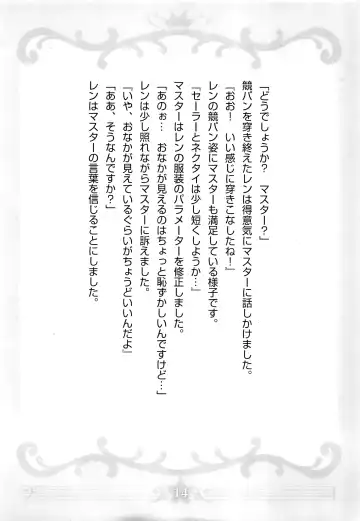 「どうでしょうか？　マスター？」
競パンを穿き終えたレンは得意気にマスターに話しかけました。
『おお！　いい感じに穿きこなしたね！』
レンの競パン姿にマスターも満足している様子です。
『セーラーとネクタイは少し短くしようか…』
マスターはレンの服装のパラメーターを修正しました。
「あのぉ…　おなかが見えるのはちょっと恥ずかしいんですけど…」
レンは少し照れながらマスターに訴えました。
『いや、おなかが見えているぐらいがちょうどいいんだよ』
「ああ、そうなんですか？」
レンはマスターの言葉を信じることにしました。
14